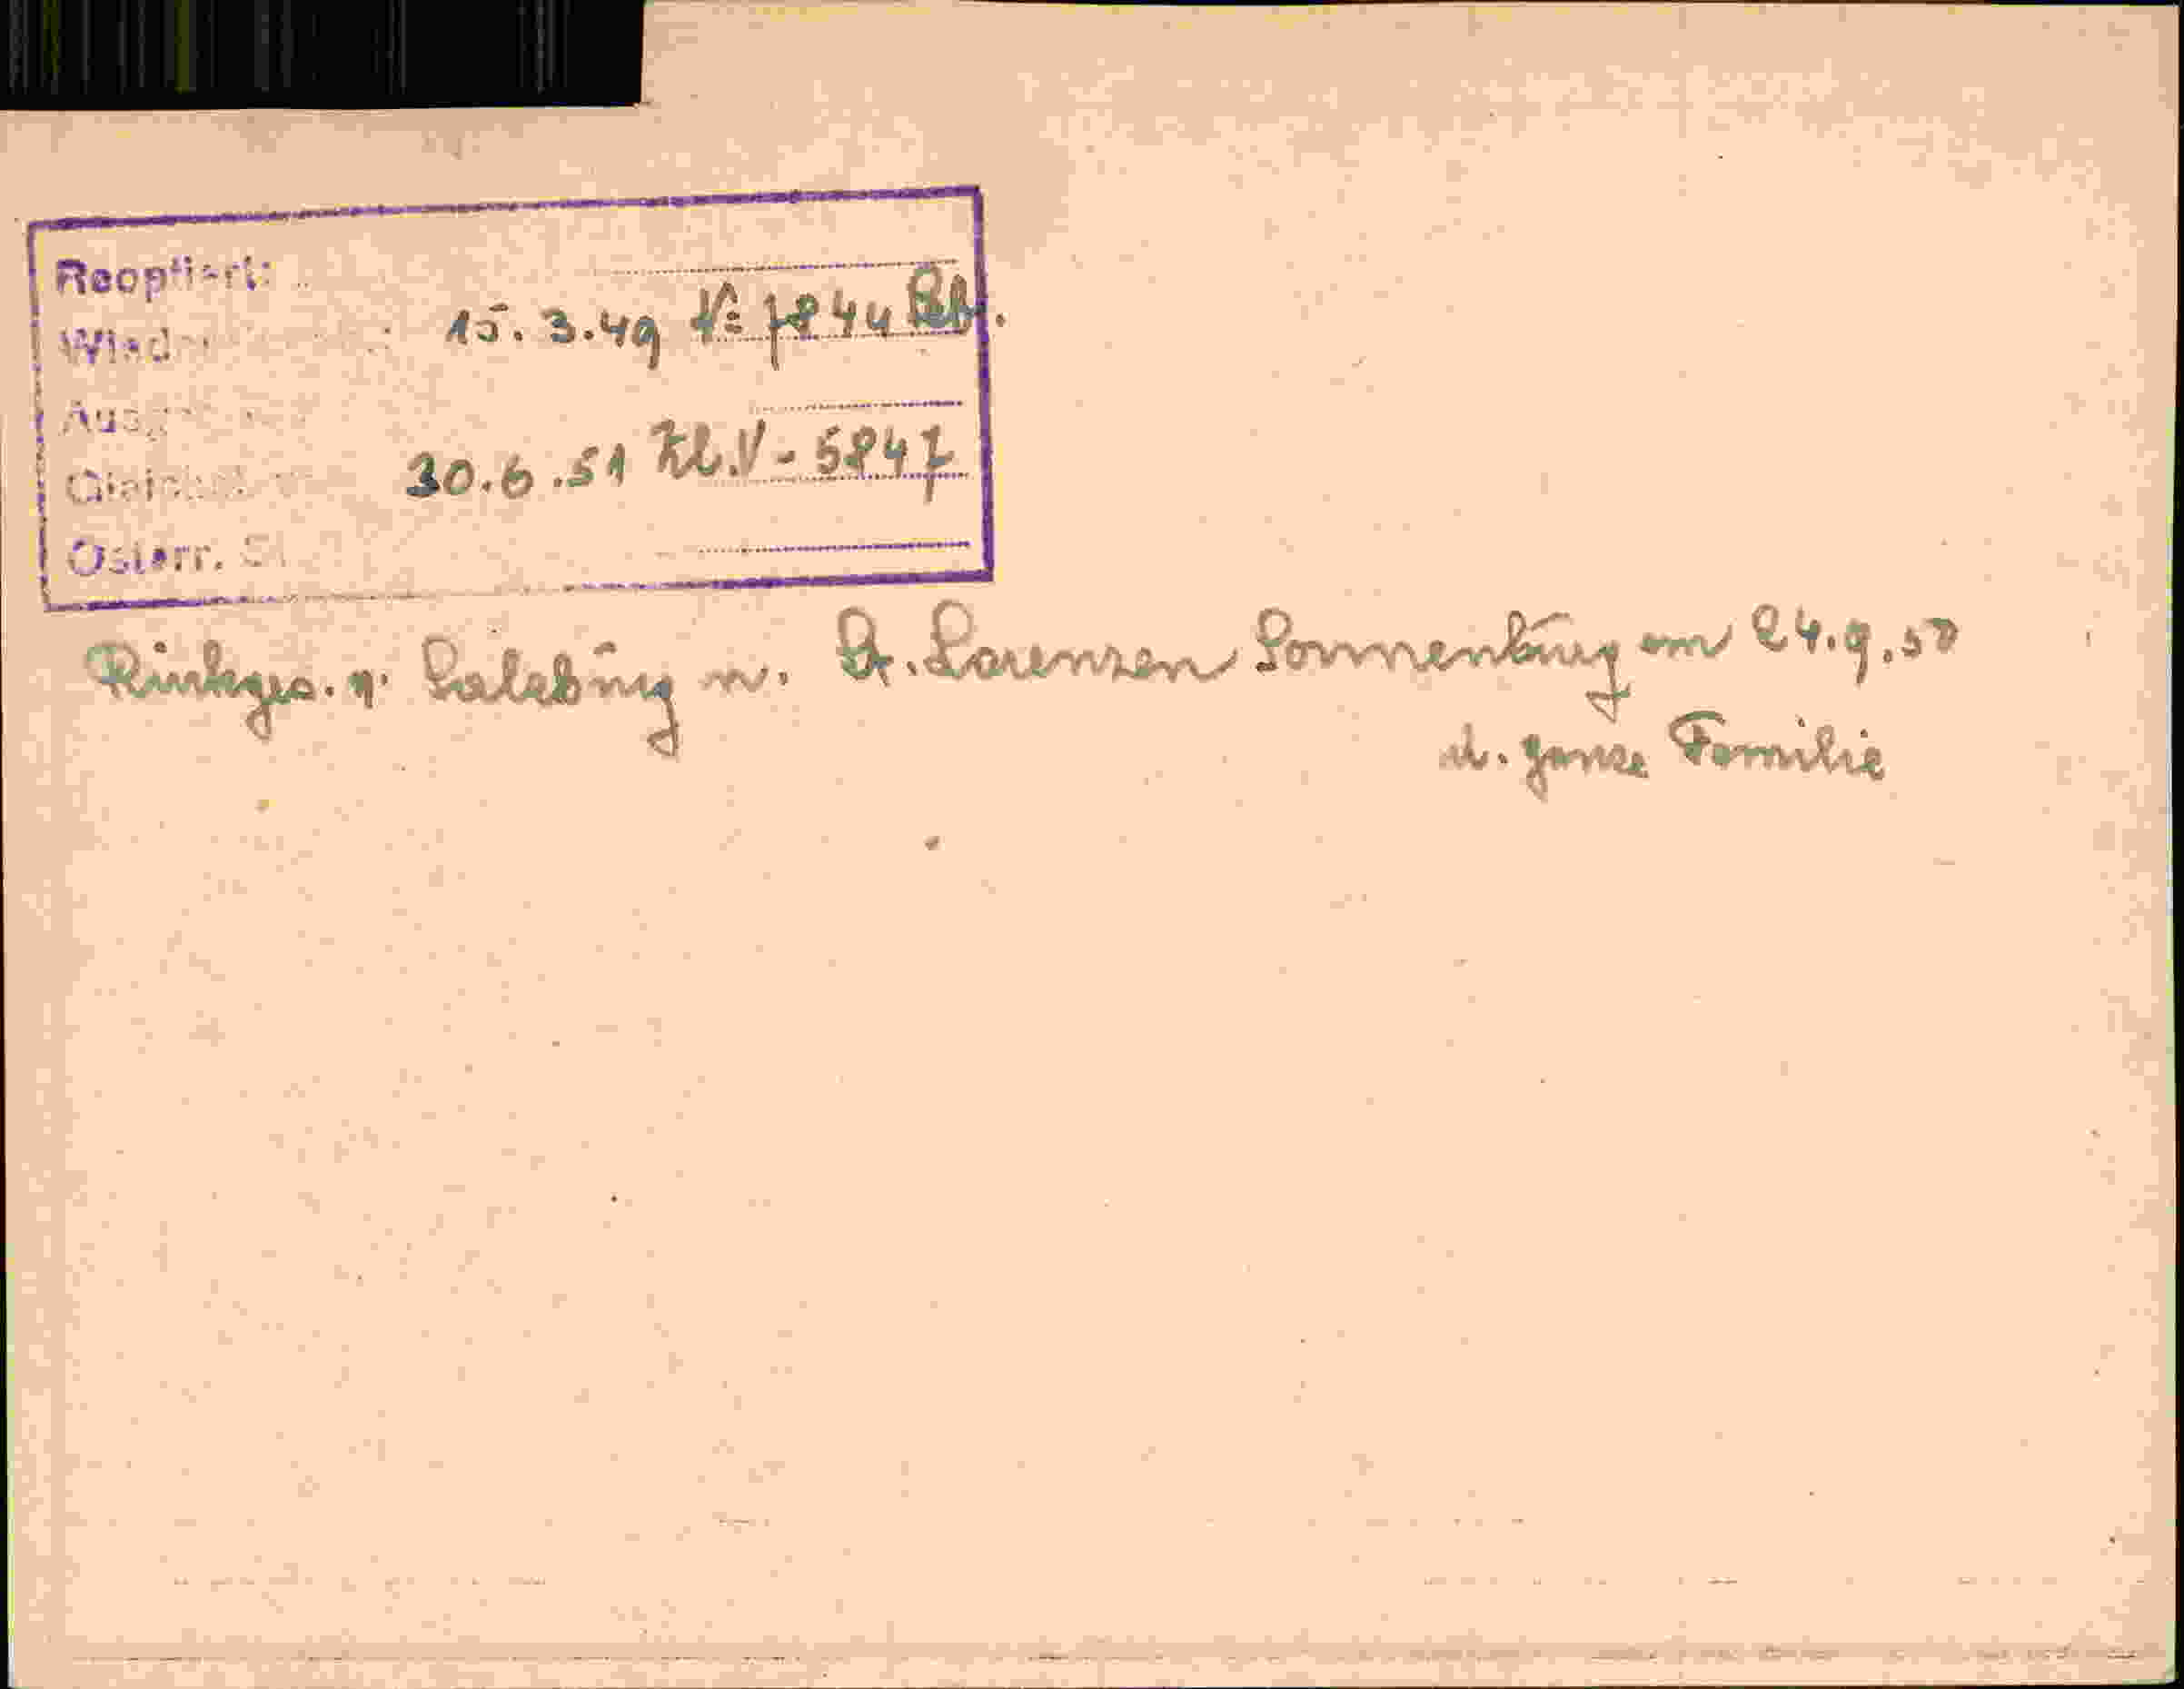 Reoptiert:
15.3.49 V= 7844
30.6.51 Zl.V - 5847
Österr.
Rückges. v. Salzburg n. St. Lorenzen Sonnenburg am 24.9.50
d. ganze Familie